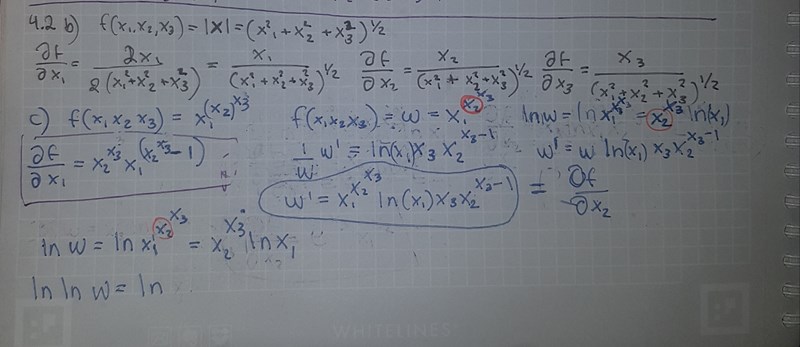 4.2 b) f(x₁,x₂,x₃) = |X| = (x₁² + x₂² + x₃²)^1/2
∂f/∂x₁ = 2x₁/2(x₁²+x₂²+x₃²) = x₁/(x₁²+x₂²+x₃²)^1/2 ∂f/∂x₂ = x₂/(x₁²+x₂²+x₃²)^1/2 ∂f/∂x₃ = x₃/(x₁²+x₂²+x₃²)^1/2
c) f(x₁ x₂ x₃) = x₁^(x₂)^x₃ f(x₁ x₂ x₃) = w = x₁^x₂^x₃ ln w = ln x₁^x₂^x₃ = x₂^x₃ ln(x₁)
∂f/∂x₁ = x₂^x₃ x₁^(x₂^x₃ - 1) 1/w w' = ln(x₁) x₃ x₂^x₃-1 w' = w ln(x₁) x₃ x₂^x₃-1
w' = x₁^x₂^x₃ ln(x₁) x₃ x₂^x₃-1 = ∂f/∂x₂
ln w = ln x₁^x₂^x₃ = x₂^x₃ ln x₁
ln ln w = ln
WHITELINES